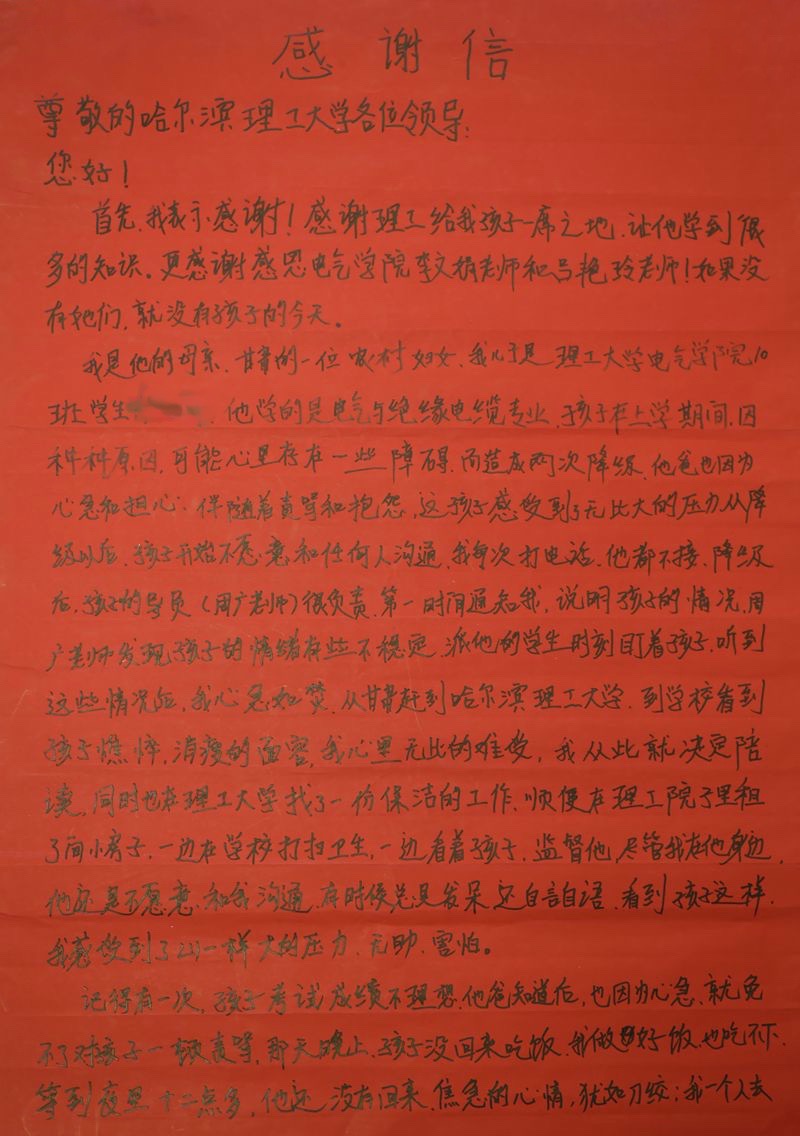 感谢信
尊敬的哈尔滨理工大学各位领导:
您好!
首先,我表示感谢!感谢理工给我孩子一席之地,让他学到很
多的知识。更感谢感恩电气学院李文娟老师和吕艳玲老师!如果没
有她们,就没有孩子的今天。
我是他的母亲,甘肃的一位农村妇女,我儿子是理工大学电气学院10
班学生 他学的是电气与绝缘电缆专业,孩子在上学期间,因
种种原因,可能心里存在一些障碍,而造成两次降级,他爸也因为
心急和担心,伴随着责骂和抱怨,这孩子感受到了无比大的压力从降
级以后,孩子开始不愿意和任何人沟通,我每次打电话,他都不接,降级
后,孩子的导员(周广老师)很负责,第一时间通知我,说明孩子的情况,周
广老师发现孩子的情绪有些不稳定,派他的学生时刻盯着孩子,听到
这些情况后,我心急如焚,从甘肃赶到哈尔滨理工大学,到学校看到
孩子憔悴,消瘦的面容,我心里无比的难受,我从此就决定陪
读,同时也在理工大学找了一份保洁的工作,顺便在理工院子里租
了间小房子,一边在学校打扫卫生,一边看着孩子,监督他,尽管我在他身边,
他还是不愿意和我沟通,有时候总是发呆还自言自语,看到孩子这样,
我感受到了山一样大的压力、无助、害怕。
记得有一次,孩子考试成绩不理想,他爸知道后,也因为心急,就免
不了对孩子一顿责骂,那天晚上,孩子没回来吃饭,我做好饭,也吃不下,
等到夜里十二点多,他还没有回来,焦急的心情,犹如刀绞;我一个人去